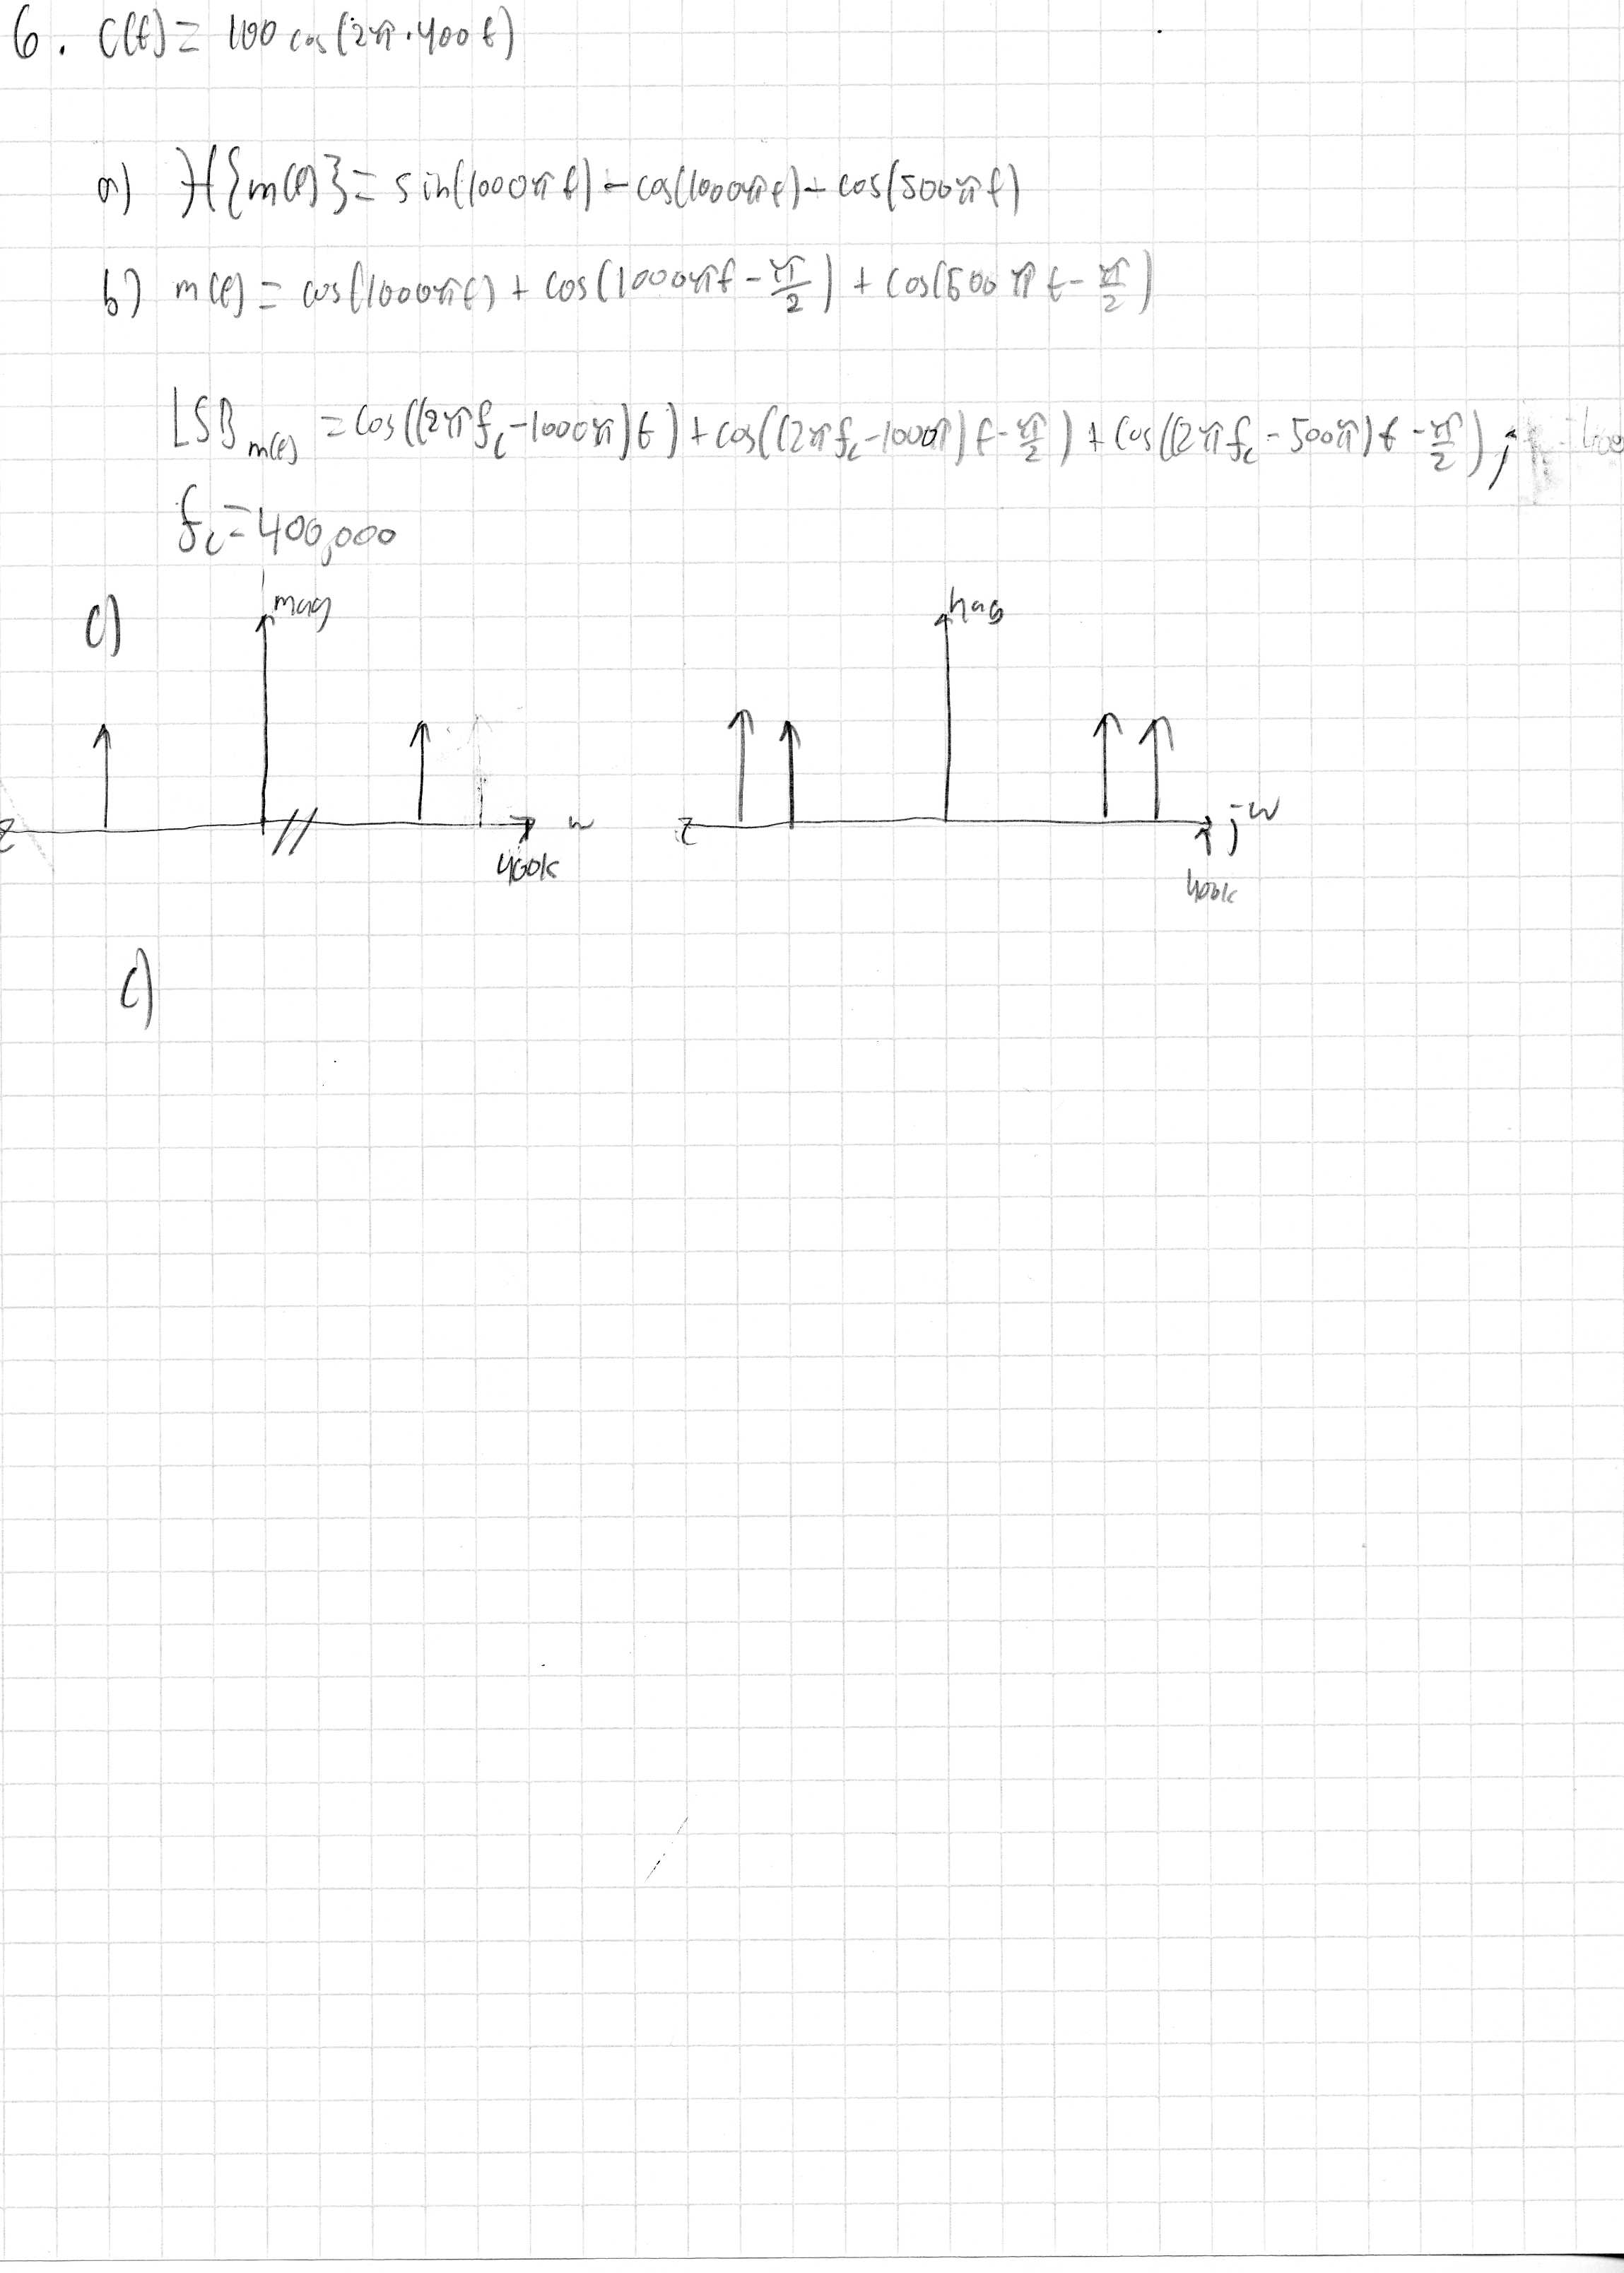 6. C(t) = 100 cos(2π·400t)
a) H{m(t)} = sin(1000πt) - cos(1000πt) - cos(500πt)
b) m(t) = cos(1000πt) + cos(1000πt - π/2) + cos(500πt - π/2)
LSB m(t) = cos((2πfc - 1000π)t) + cos((2πfc - 1000π)t - π/2) + cos((2πfc - 500π)t - π/2);
fc = 400,000
c) mag
w
400k
jw
400k
c)